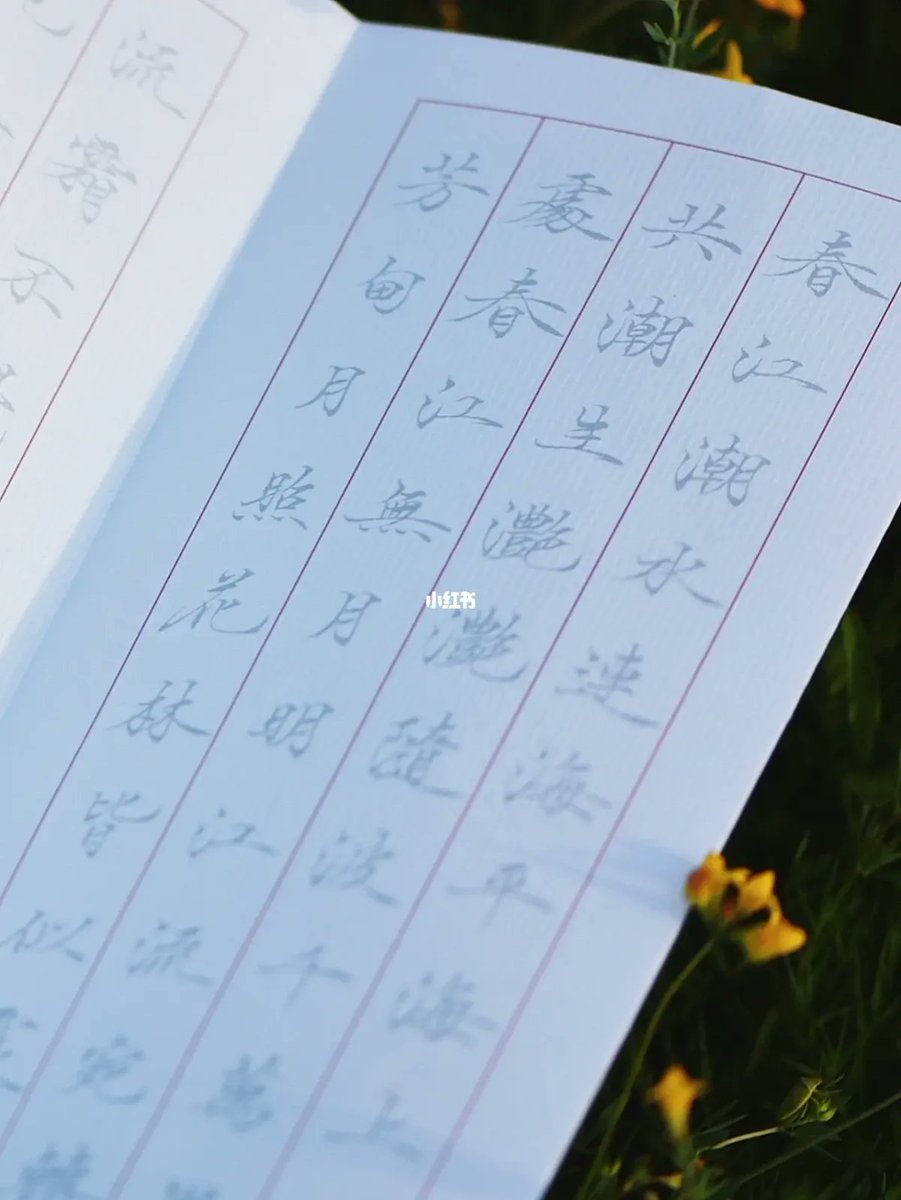 春江潮水連海平海上
共潮生灩灩隨波千萬
處春江無月明江流宛
芳甸月照花林皆似
流霜不
小红书